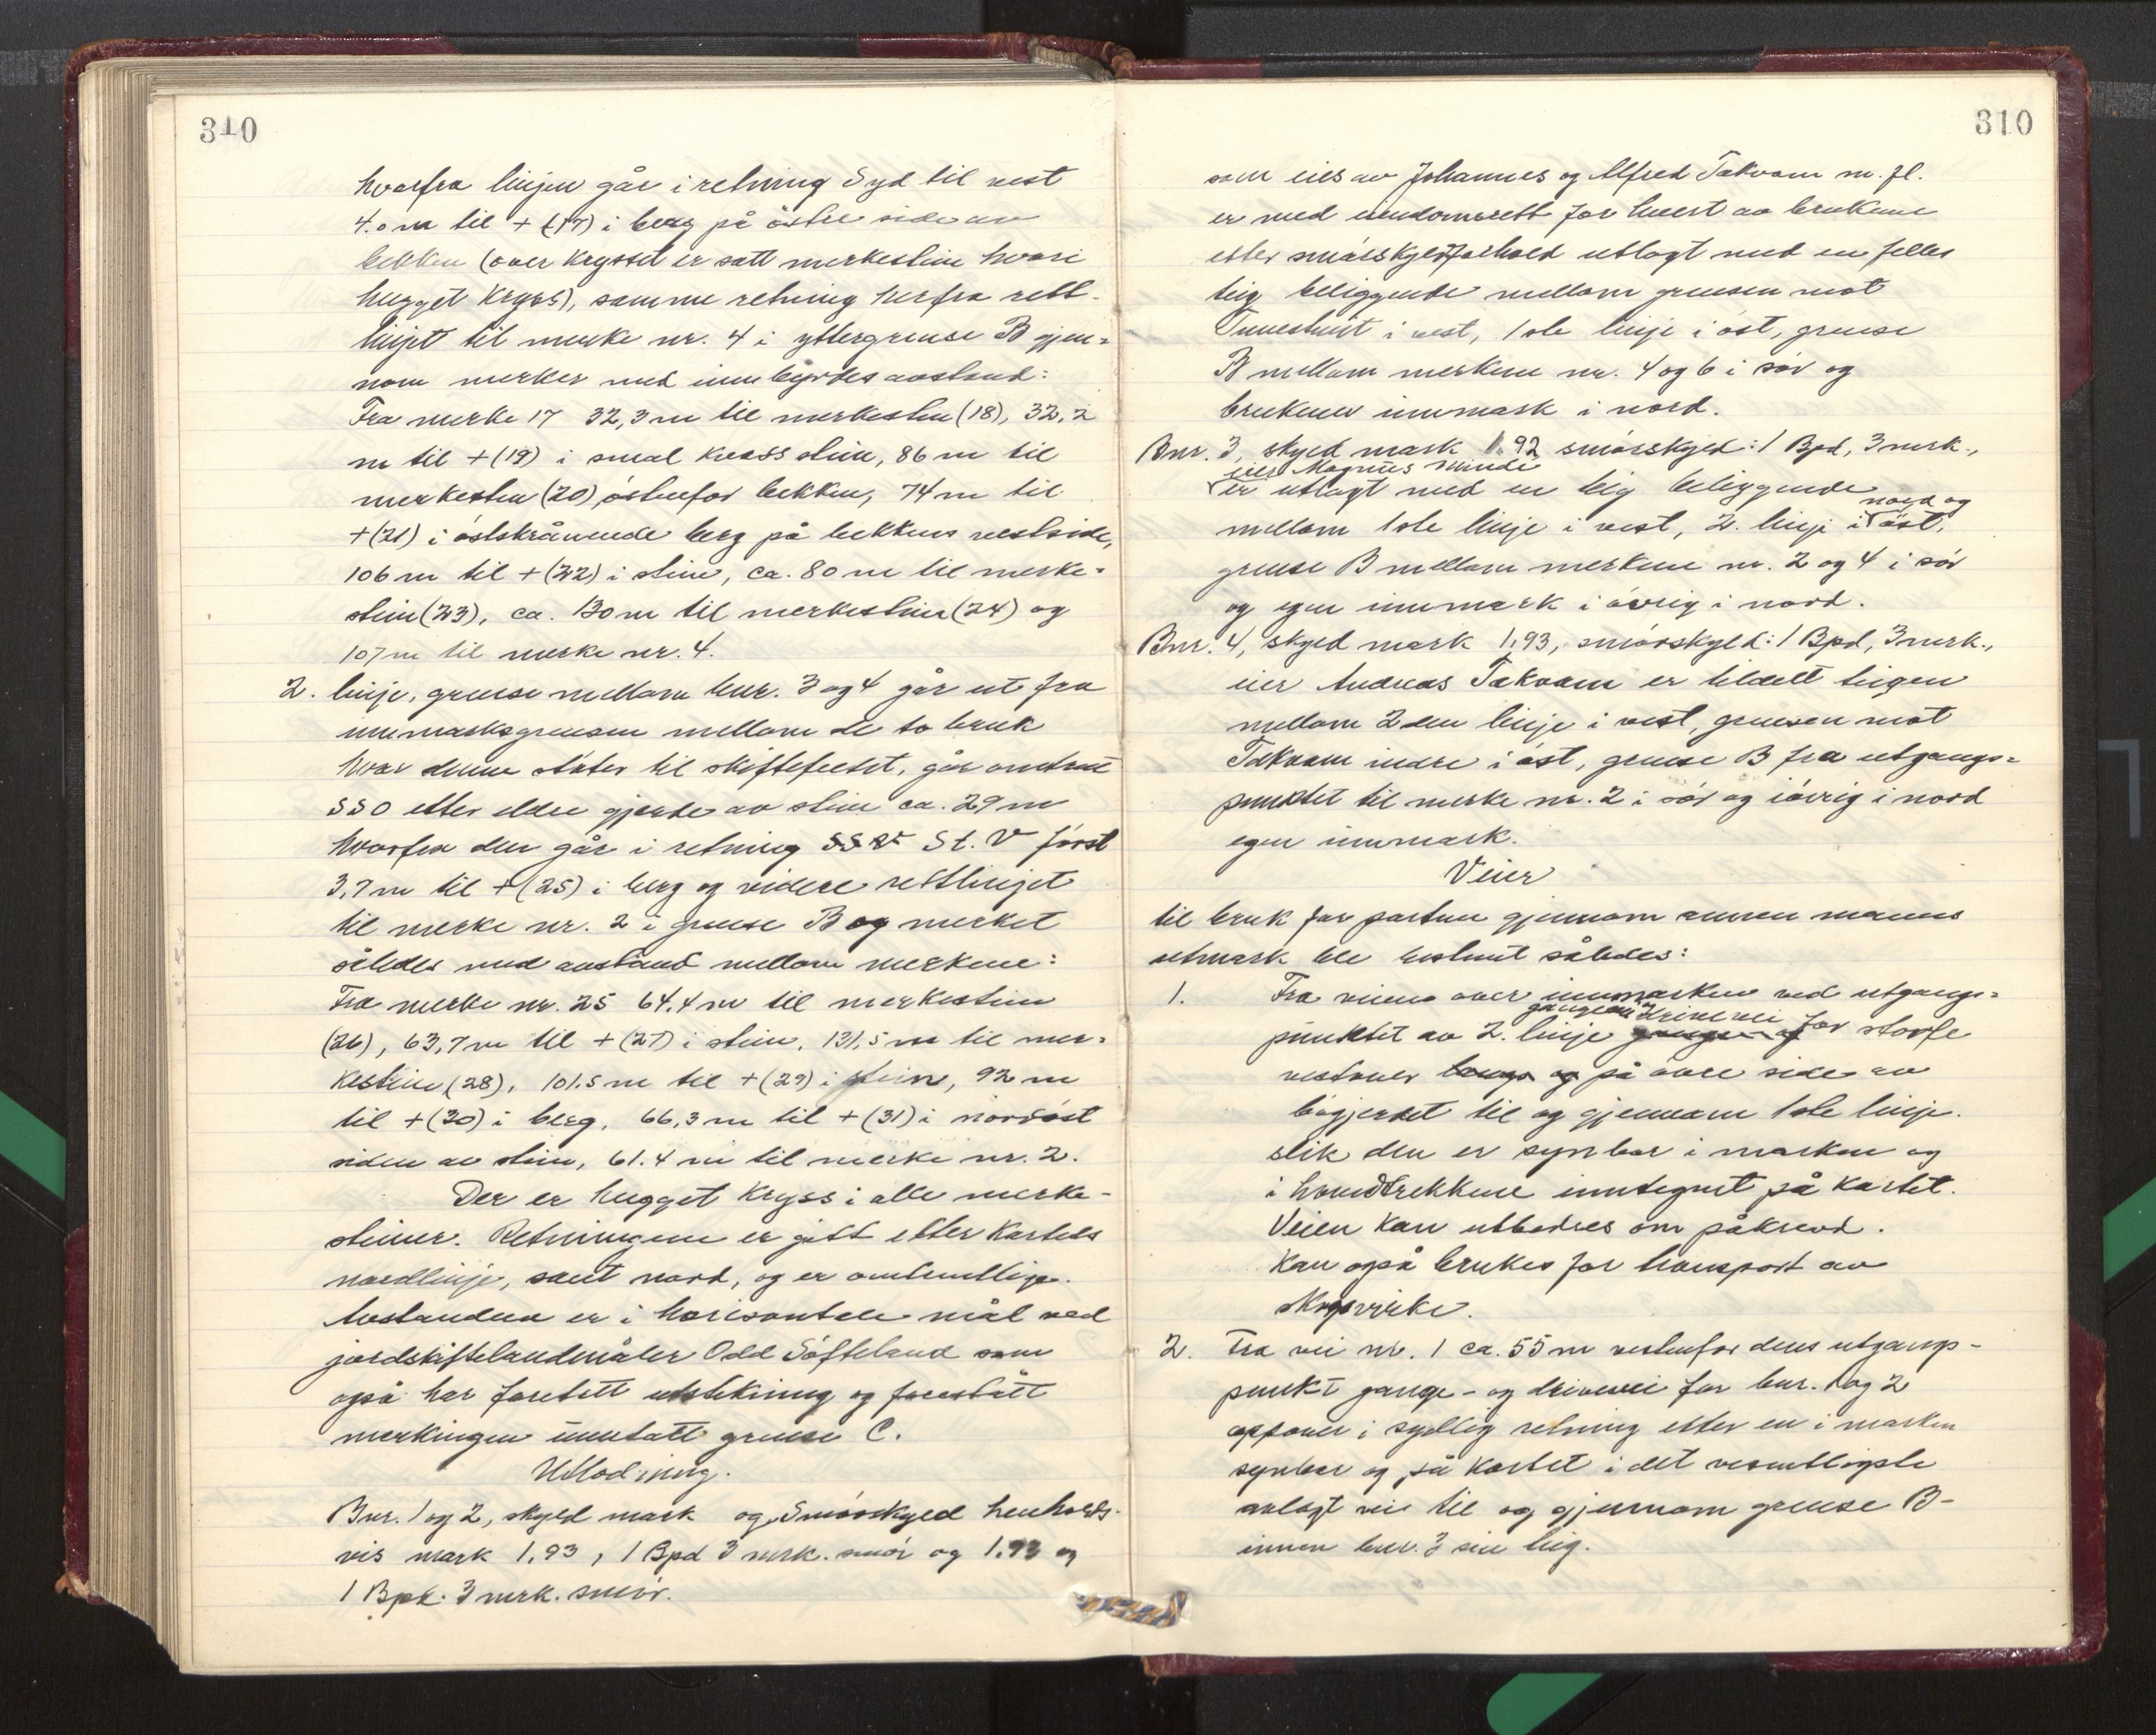 310
hvorfra linjen går i retning Syd til vest
4.0 m til + (17) i berg på östre side av
bekken (over krysset er satt merkestein hvori
hugget kryss), samme retning herfra rett-
linjet til merke nr. 4 i yttergrense B gjen-
nom merker med innbyrdes avstand:
Fra merke 17 32,3 m til merkestein (18), 32,2
m til + (19) i smal kvass stein, 86 m til
merkestein (20) östenfor bekken, 74 m til
+ (21) i östskrånende berg på bekkens vestside,
106 m til + (22) i stein, ca. 80 m til merke-
stein (23), ca. 130 m til merkestein (24) og
107 m til merke nr. 4.
2. linje, grense mellom bnr. 3 og 4 går ut fra
innmarksgrensen mellom de to bruk
hvor denne stöter til skiftefeltet, går omtrent
SSO etter eldre gjerde av stein ca. 29 m
hvorfra den går i retning S t. V först
3,7 m til + (25) i berg og videre rettlinjet
til merke nr. 2 i grense B og merket
således med avstand mellom merkene:
Fra merke nr. 25 64.4 m til merkestein
(26), 63,7 m til + (27) i stein, 131,5 m til mer-
kestein (28), 101.5 m til + (29) i stein, 92 m
til + (30) i berg, 66,3 m til + (31) i nordöst
siden av stein, 61.4 m til merke nr. 2.
Der er hugget kryss i alle merke-
steiner. Retningene er gitt etter kartets
nordlinje, sant nord, og er omtrentlige.
Avstandene er i horisontale mål ved
jordskiftelandmåler Odd Söfteland som
også har foretatt utstikning og forestått
merkingen unntatt grense C.
Utlodning.
Bnr. 1 og 2, skyld mark og Smörskyld henholds-
vis mark 1,93, 1 Bpd 3 mrk. smör og 1.93 og
1 Bpd. 3 mrk. smör.
310
som eies av Johannes og Alfred Takvam m. fl.
er med eiendomsrett for hvert av brukene
etter smörskyldforhold utlagt med en felles
teig beliggende mellom grensen mot
Tunestveit i vest, 1ste linje i öst, grense
B mellom merkene nr. 4 og 6 i sör og
brukenes innmark i nord.
Bnr. 3, skyld mark 1.92 smörskyld: 1 Bpd, 3 mrk.,
eier Magnus Minde
er utlagt med en teig beliggende
nord og
mellom 1ste linje i vest, 2. linje i öst,
grense B mellom merkene nr. 2 og 4 i sör
og egen innmark i övrig i nord.
Bnr. 4, skyld mark 1,93, smörskyld: 1 Bpd, 3 mrk.,
eier Andreas Takvam er tildelt teigen
mellom 2den linje i vest, grensen mot
Takvam indre i öst, grense B fra utgangs-
punktet til merke nr. 2 i sör og iövrig i nord
egen innmark.
Veier
til bruk for partene gjennom annen manns
utmark ble bestemt således:
1. Fra veien over innmarken ved utgangs-
gange og drivevei
punktet av 2. linje for storfe
vestover på övre side av
bögjerdet til og gjennom 1ste linje.
slik den er synbar i marken og
i hovedtrekkene inntegnet på kartet.
Veien kan utbedres om påkrevd.
Kan også brukes for transport av
skogsvirke.
2. Fra vei nr. 1 ca. 55 m vestenfor dens utgangs-
punkt gange- og drivevei for bnr. 1 og 2
oppover i sydlig retning etter en i marken
synbar og på kartet i det vesentligste
avlagt vei til og gjennom grense B-
innen bnr. 3 sin teig.